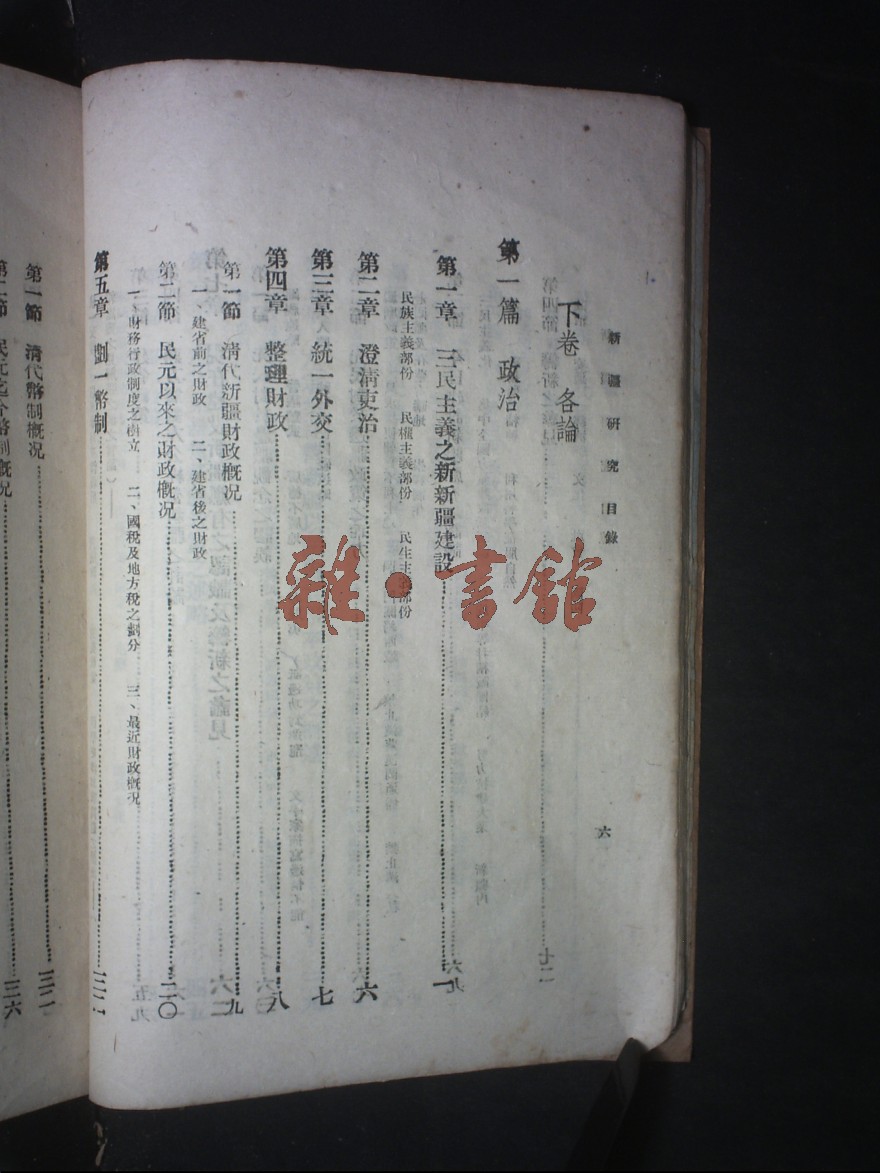 新疆研究目錄
六
下卷 各論
第一篇 政治
第一章 三民主義之新新疆建設 一
民族主義部份 民權主義部份 民生主義部份
第二章 澄淸吏治 六
第三章 統一外交 七
第四章 整理財政 八
第一節 淸代新疆財政概况 九
一、建省前之財政 二、建省後之財政
第二節 民元以來之財政概况 二〇
一、財務行政制度之樹立 二、國稅及地方稅之劃分 三、最近財政概况
第五章 劃一幣制
第一節 淸代幣制概况
第二節 民元迄今幣制概况 三六
雜·書館